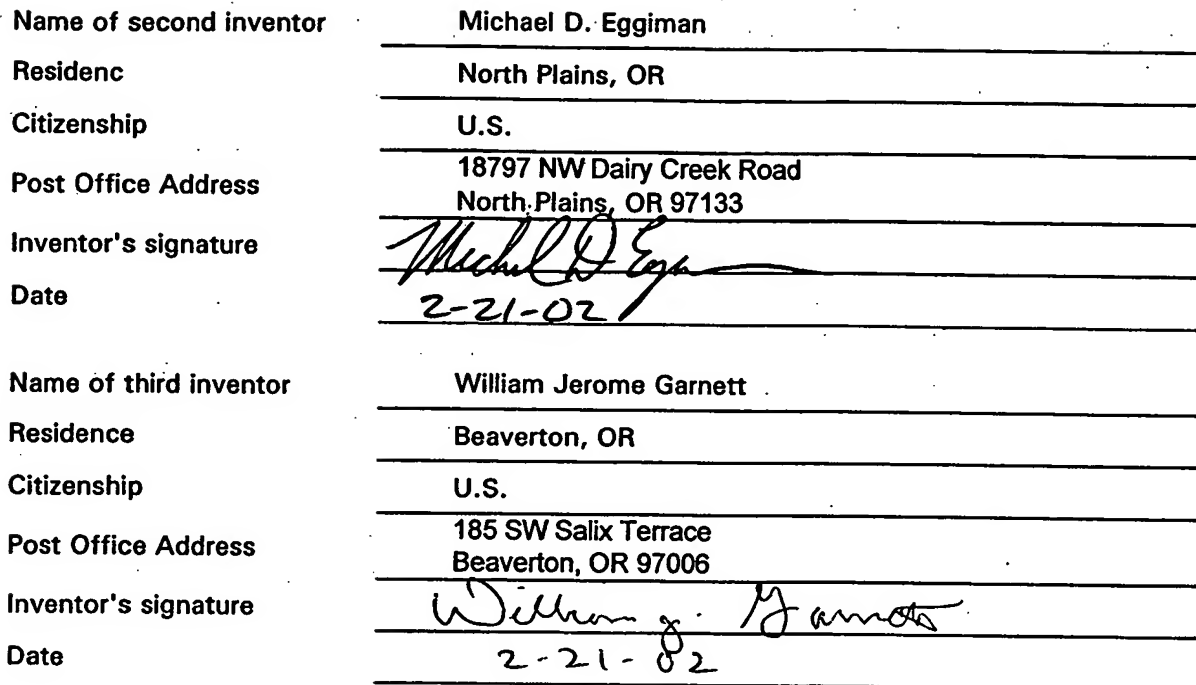 Name of second inventor Michael D. Eggiman
Residenc North Plains, OR
Citizenship U.S.
Post Office Address 18797 NW Dairy Creek Road
North Plains, OR 97133
Inventor's signature Michael D Egg
Date 2-21-02
Name of third inventor William Jerome Garnett
Residence Beaverton, OR
Citizenship U.S.
Post Office Address 185 SW Salix Terrace
Beaverton, OR 97006
Inventor's signature William J. Garnett
Date 2-21-02